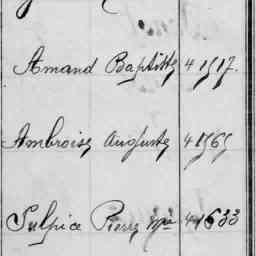 Amand Baptiste 4 1517.
Ambroise Auguste 4 1565
Sulpice Pierre Mie 4 1633